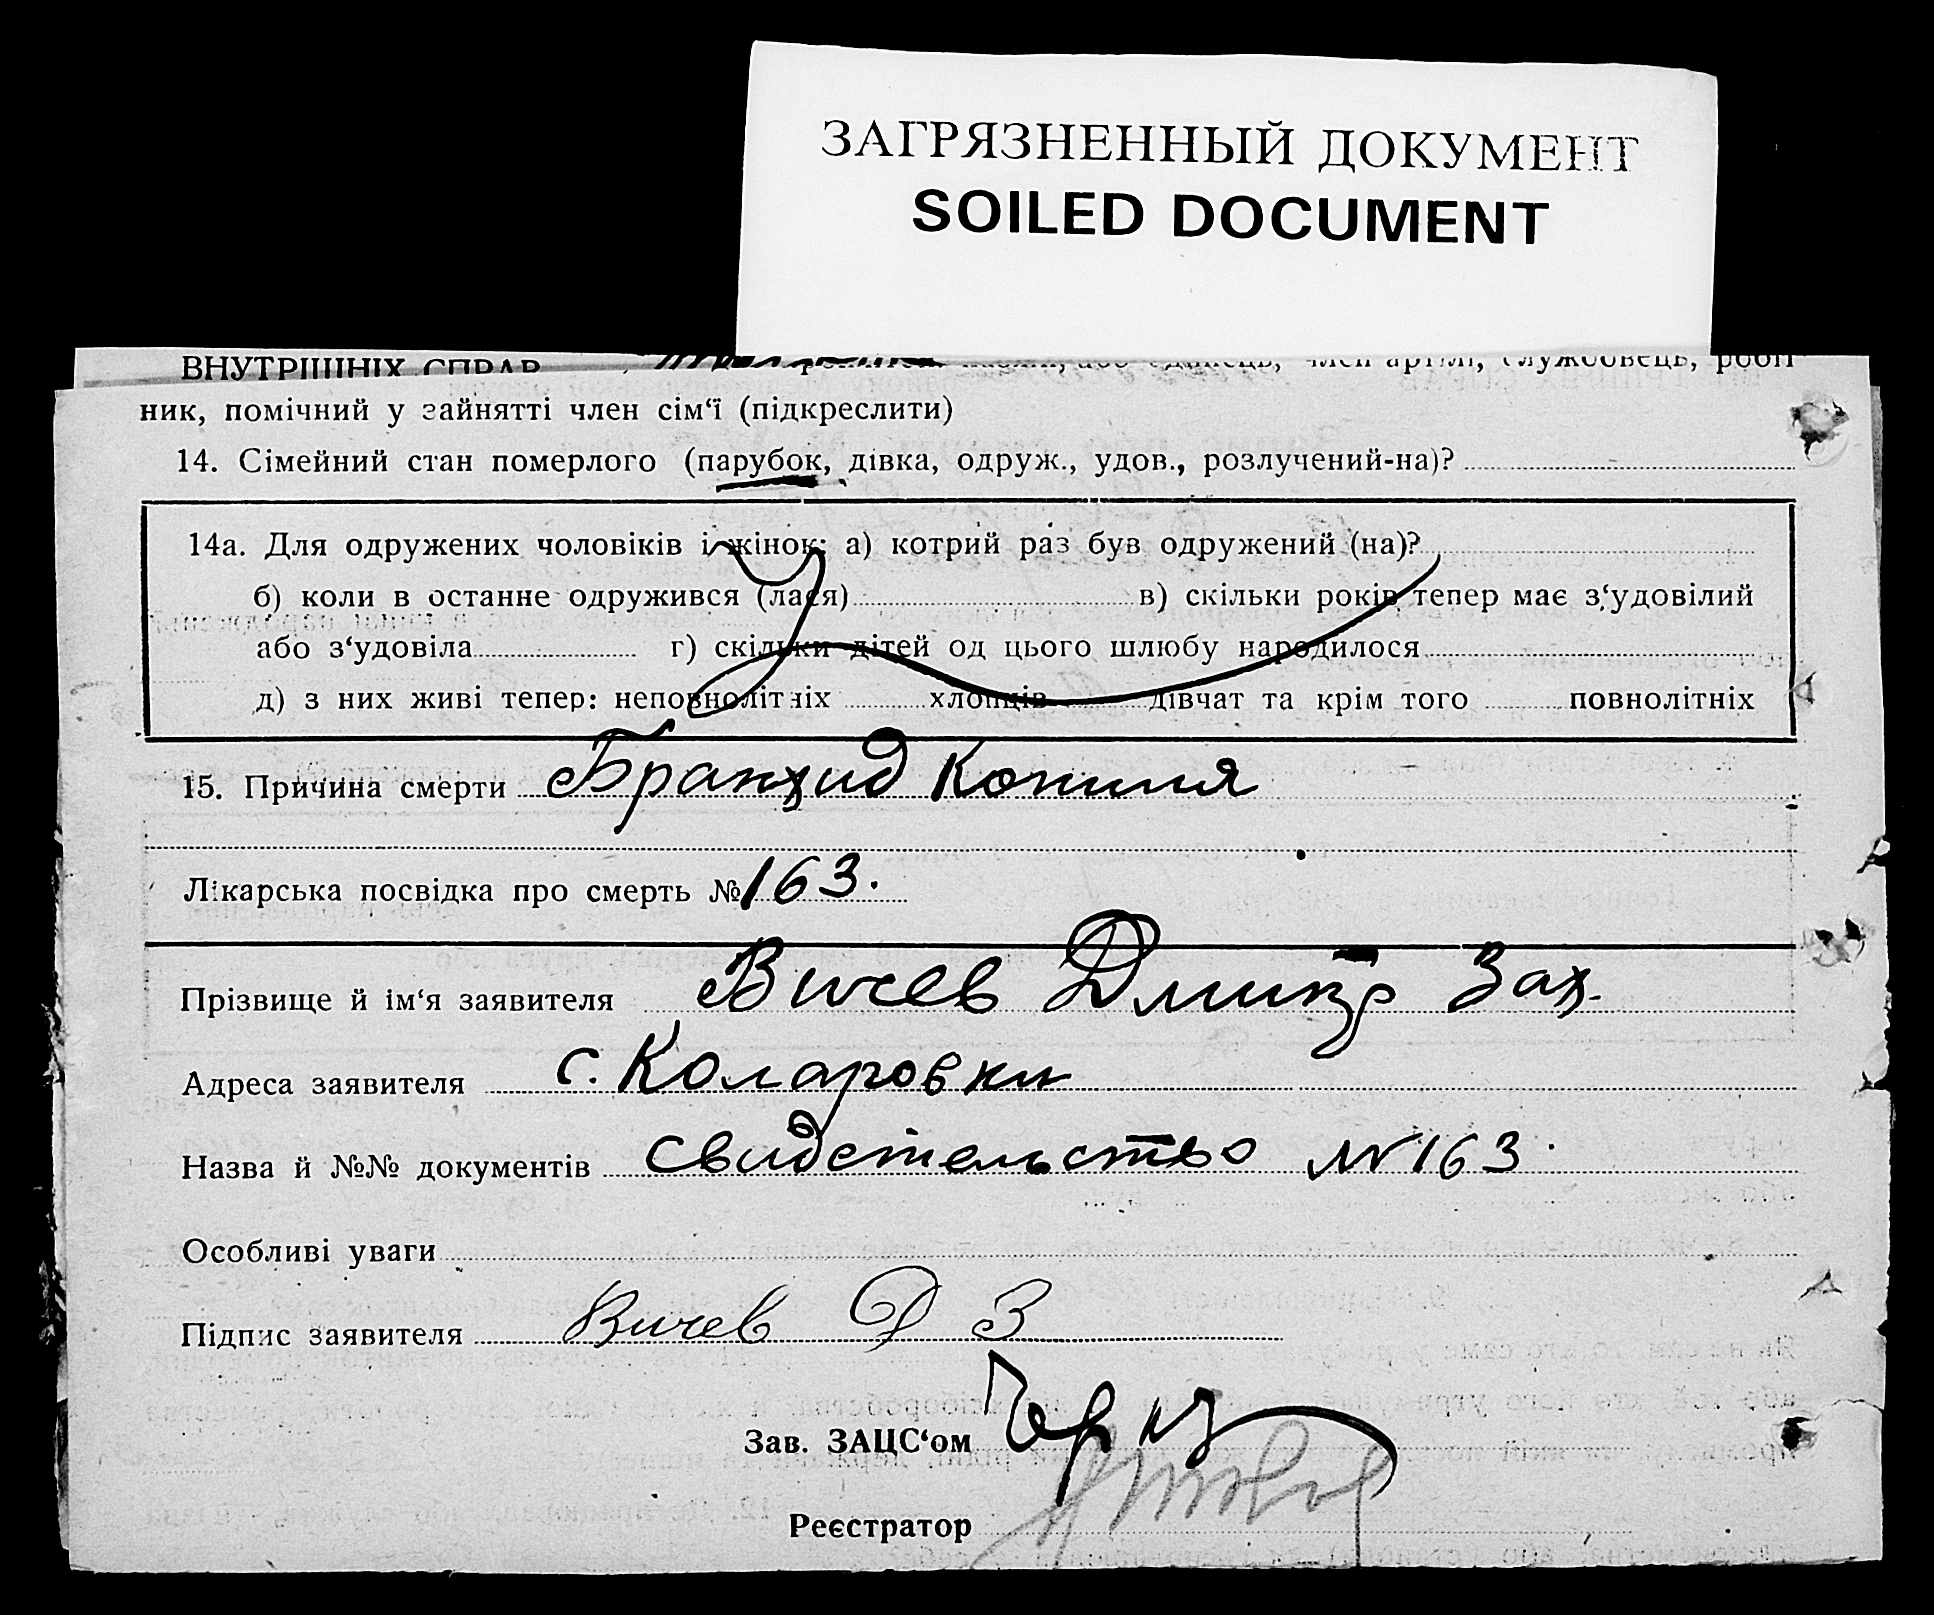 ЗАГРЯЗНЕННЫЙ ДОКУМЕНТ
SOILED DOCUMENT
ВНУТРІШНІХ СПРАВ
член артілі, службовець, робіт
ник, помічний у зайнятті член сім‘ї (підкреслити)
14. Сімейний стан померлого (парубок, дівка, одруж., удов., розлучений-на)?
14а. Для одружених чоловіків і жінок: а) котрий раз був одружений (на)?
б) коли в останне одружився (лася) в) скільки років тепер має з‘удовілий
або з‘удовіла г) скільки дітей од цього шлюбу народилося
д) з них живі тепер: неповнолітніх хлопців дівчат та крім того повнолітніх
15. Причина смерти
Лікарська посвідка про смерть № 163.
Прізвище й ім‘я заявителя Вичев Дмитр Зах.
Адреса заявителя с. Коларовки
Назва й №№ документів свидетельство № 163.
Особливі уваги
Підпис заявителя Вичев Д З
Зав. ЗАЦС‘ом
Реєстратор